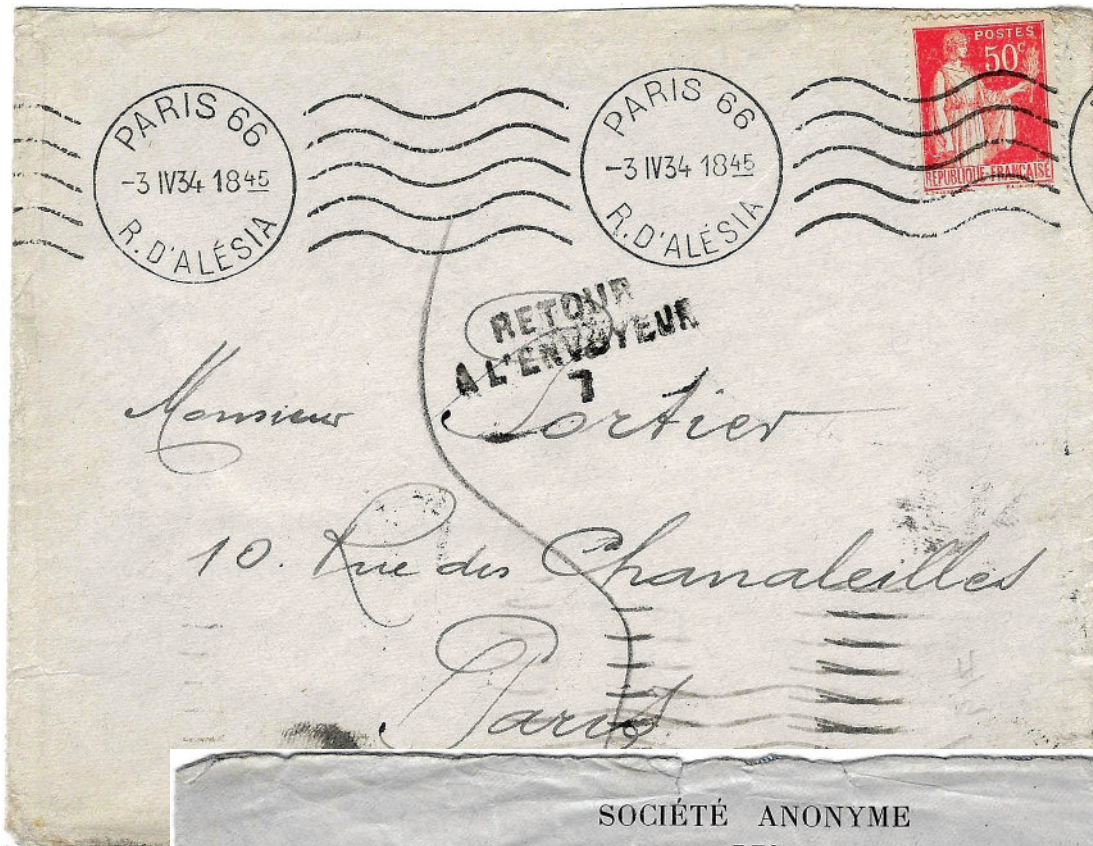 PARIS 66
-3 IV34 18 45
R. D'ALÉSIA
PARIS 66
-3 IV34 18 45
R. D'ALÉSIA
POSTES
50c
RÉPUBLIQUE FRANÇAISE
RETOUR
A L'ENVOYEUR
7
Monsieur Sortier
10. Rue des Chanaleilles
Paris
SOCIÉTÉ ANONYME